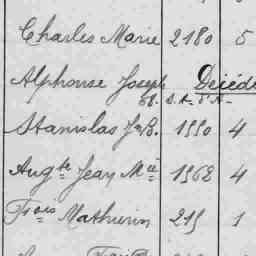 Charles Marie 2180 5
Alphonse Joseph Décédé
Stanislas J.B. 1990 4
Augte Jean Mie 1968 4
Fcois Mathurin 219 1